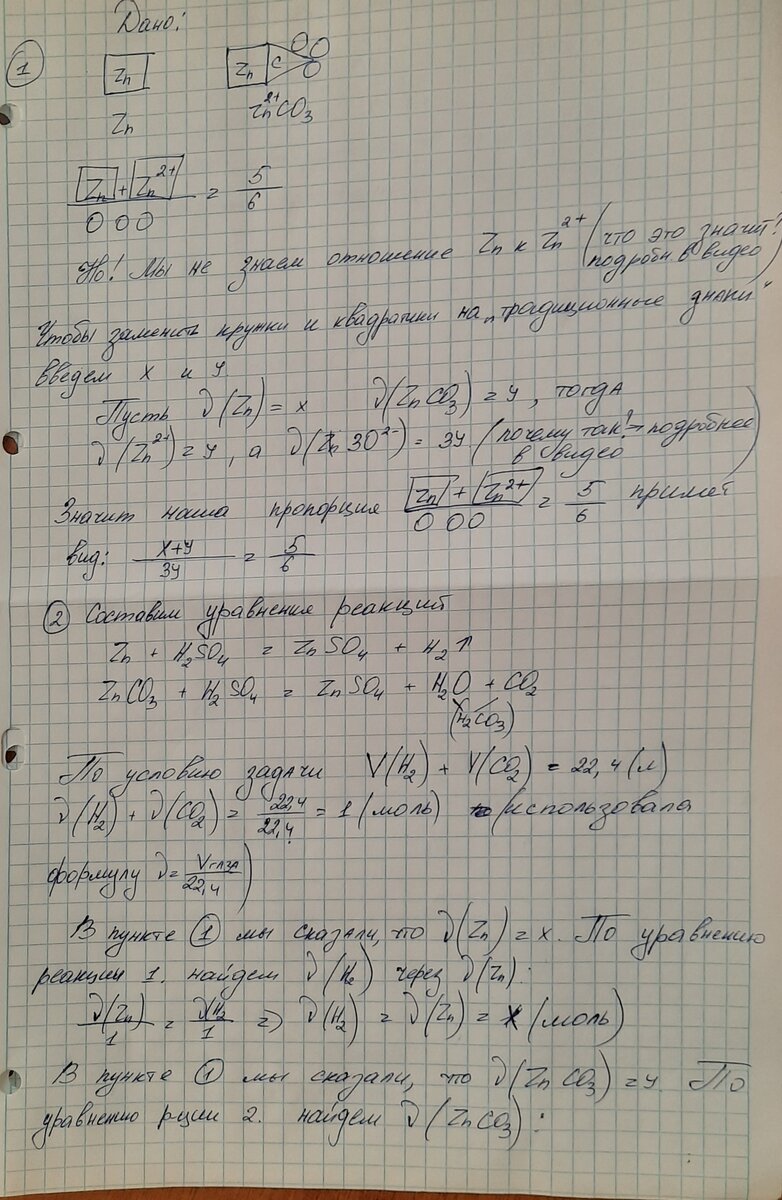 Дано:
① Zn Zn C O O O
Zn Zn²⁺CO₃
Zn + Zn²⁺ / O O O = 5/6
Но! Мы не знаем отношение Zn к Zn²⁺ (что это значит? подробн в видео)
Чтобы заменить кружки и квадратики на „традиционные знаки"
введем x и y.
Пусть ν(Zn) = x ν(ZnCO₃) = y, тогда
ν(Zn²⁺) = y, а ν(Zn 3O²⁻) = 3y (почему так? → подробнее в видео)
Значит наша пропорция Zn + Zn²⁺ / O O O = 5/6 примет
вид: x+y / 3y = 5/6
② Составим уравнения реакций
Zn + H₂SO₄ = ZnSO₄ + H₂↑
ZnCO₃ + H₂SO₄ = ZnSO₄ + H₂O + CO₂
(H₂CO₃)
По условию задачи V(H₂) + V(CO₂) = 22,4 (л)
ν(H₂) + ν(CO₂) = 22,4/22,4 = 1 (моль) (использовала
формулу ν = Vгаза/22,4)
В пункте ① мы сказали, что ν(Zn) = x. По уравнению
реакции 1. найдем ν(H₂) через ν(Zn):
ν(Zn)/1 = ν(H₂)/1 => ν(H₂) = ν(Zn) = x (моль)
В пункте ① мы сказали, что ν(ZnCO₃) = y. По
уравнению рции 2. найдем ν(ZnCO₃):